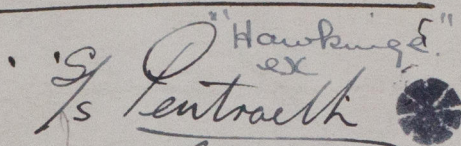 "Hawkinge"
ex
S/s Pentraeth